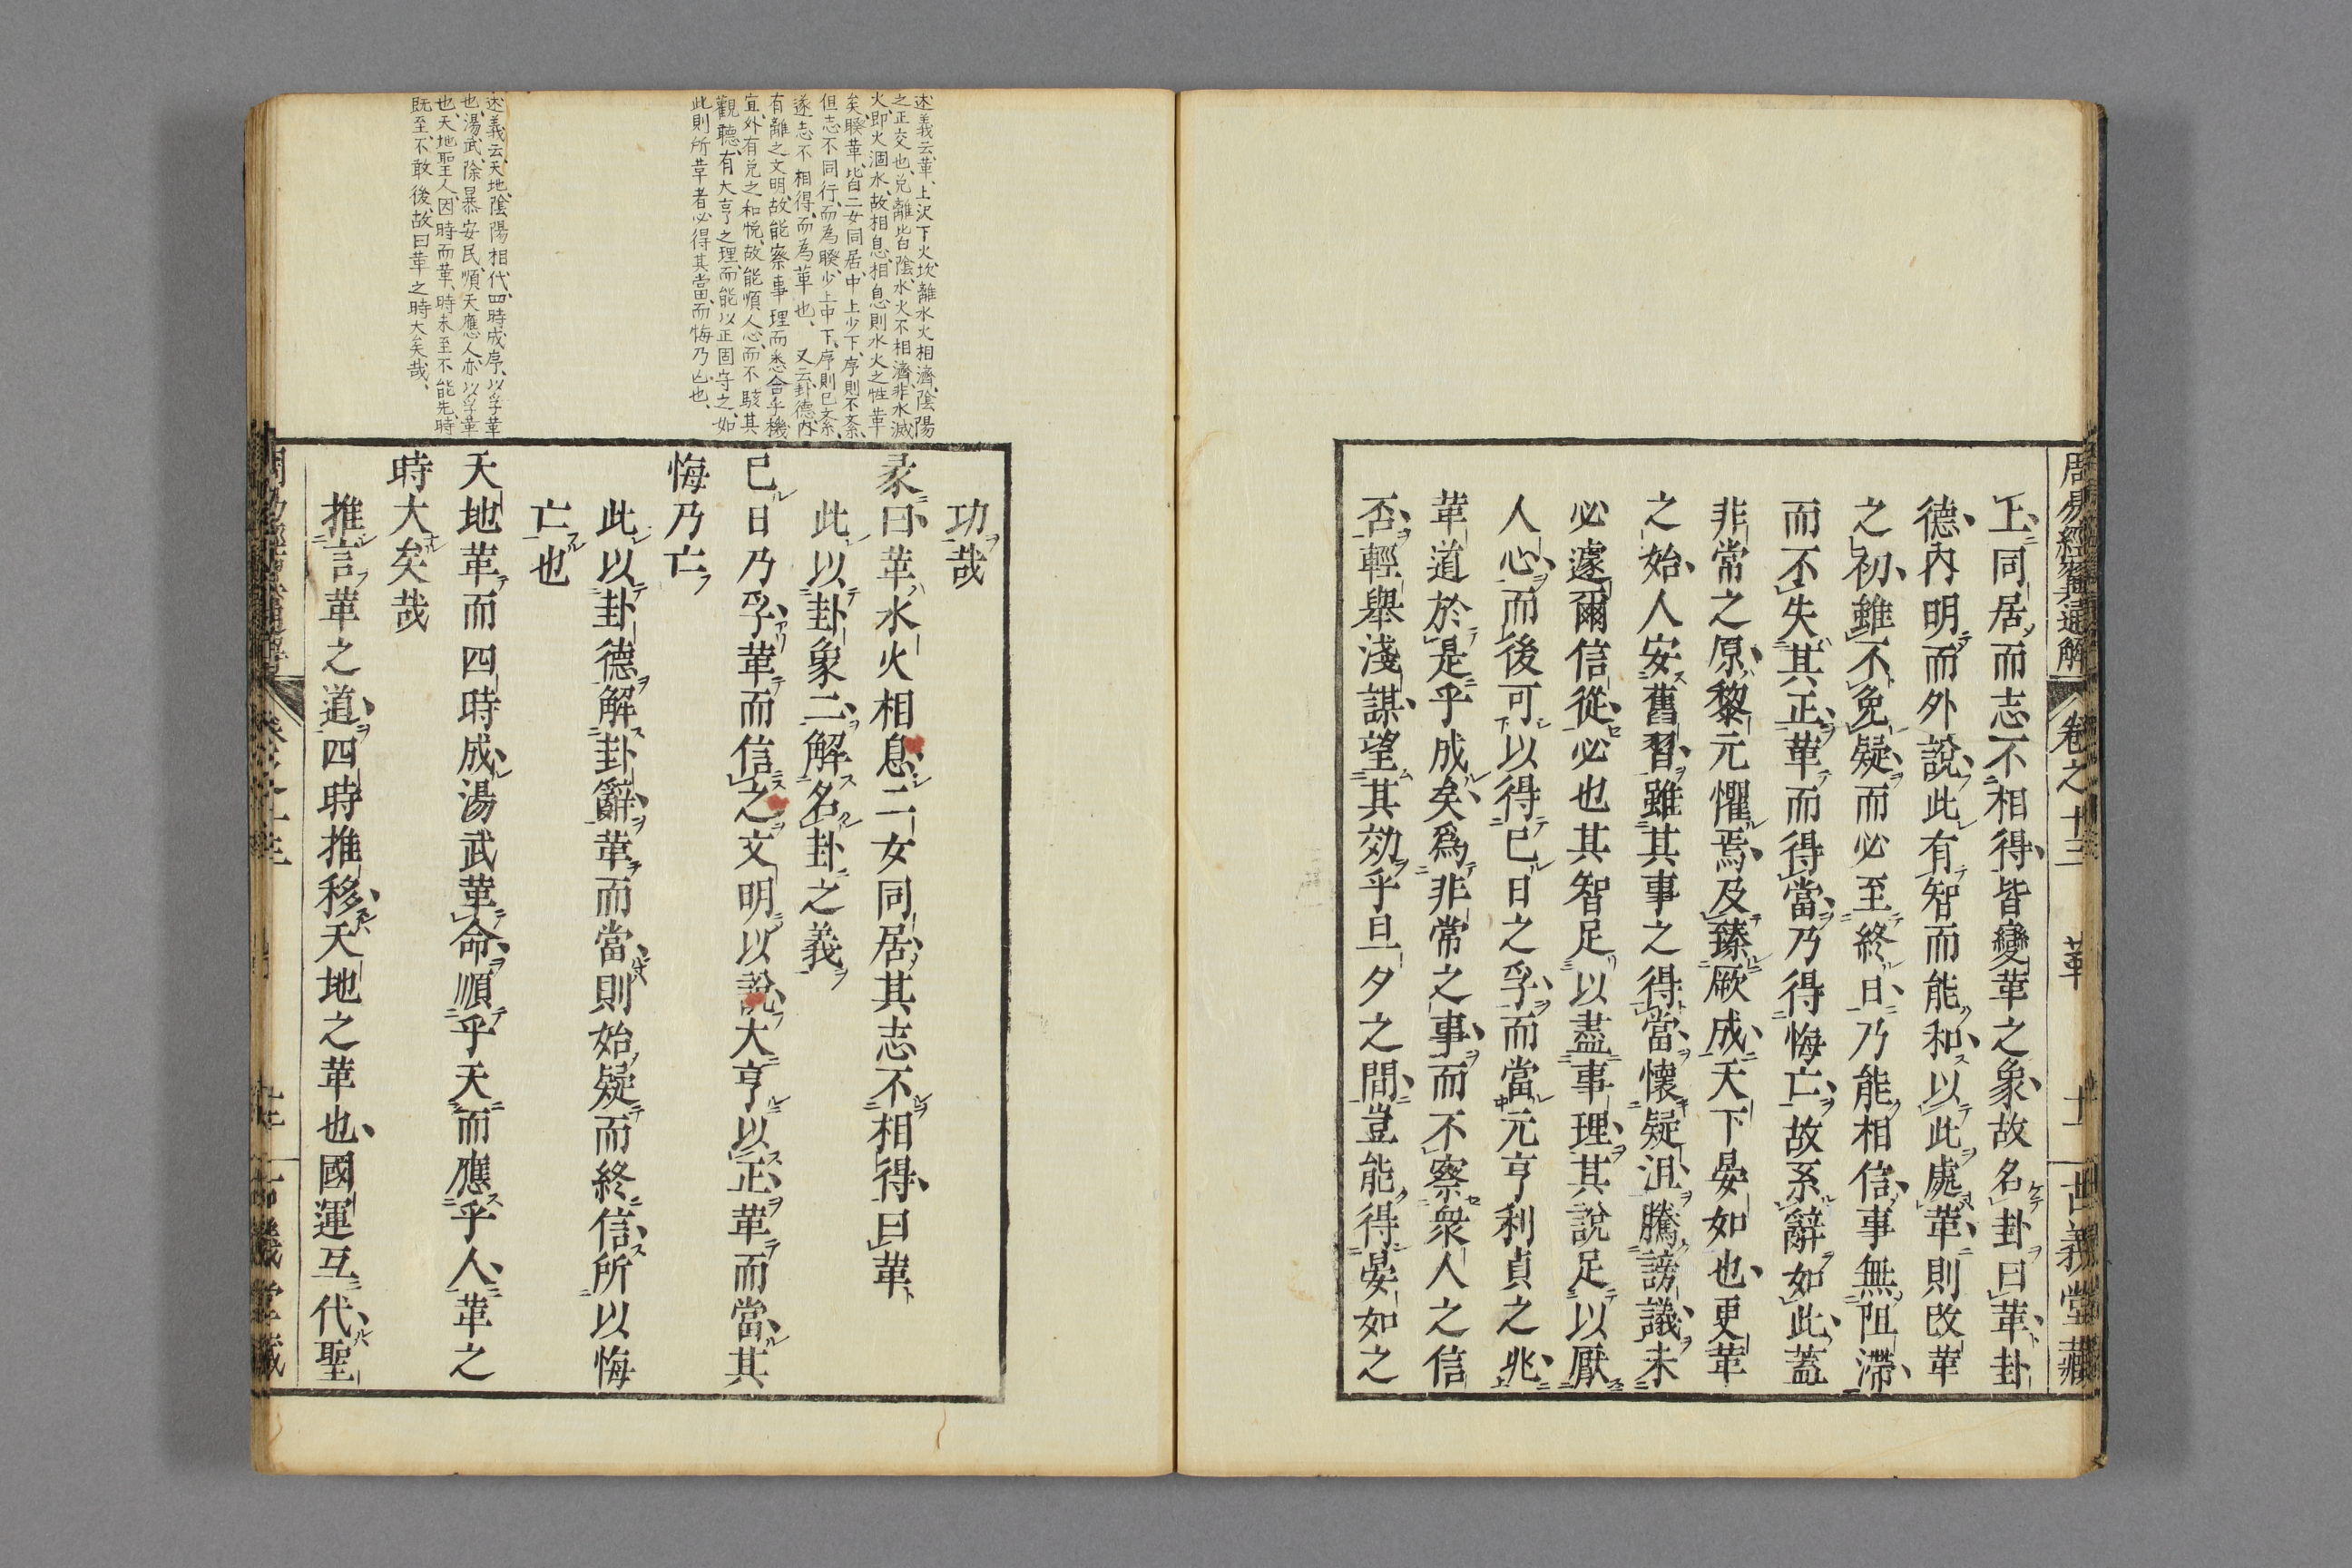 周易經翼通解 卷之十三 革 十二 古義堂藏
上同居而志不相得皆變革之象故名卦曰革卦
德内明而外說此有智而能和以此處革則改革
之初雖不免疑而必至終日乃能相信事無阻滯
而不失其正革而得當乃得悔亡故系辭如此蓋
非常之原黎元懼焉及臻厥成天下晏如也更革
之始人安舊習雖其事之得當懷疑沮騰謗議未
必遽爾信從必也其智足以盡事理其說足以厭
人心而後可以得已日之孚而當元亨利貞之兆
革道於是乎成矣爲非常之事而不察衆人之信
否輕舉淺謀望其效乎旦夕之間豈能得晏如之
功哉
彖曰革水火相息二女同居其志不相得曰革
此以卦象二解名卦之義
已日乃孚革而信之文明以說大亨以正革而當其
悔乃亡
此以卦德解卦辭革而當則始疑而終信所以悔
亡也
天地革而四時成湯武革命順乎天而應乎人革之
時大矣哉
推言革之道四時推移天地之革也國運互代聖
述義云革上沢下火坎離水火相濟陰陽
之正交也兑離皆陰水火不相濟非水滅
火即火涸水故相息相息則水火之性革
矣睽革皆二女同居中上少下序則不紊
但志不同行而為睽少上中下序則已紊
遂志不相得而為革也 又云卦德内
有離之文明故能察事理而悉合乎機
宜外有兑之和悦故能順人心而不駭其
觀聽有大亨之理而能以正固守之如
此則所革者必得其當而悔乃亡也
述義云天地陰陽相代四時成序以孚革
也湯武除暴安民順天應人亦以孚革
也天地聖人因時而革時未至不能先時
既至不敢後故曰革之時大矣哉